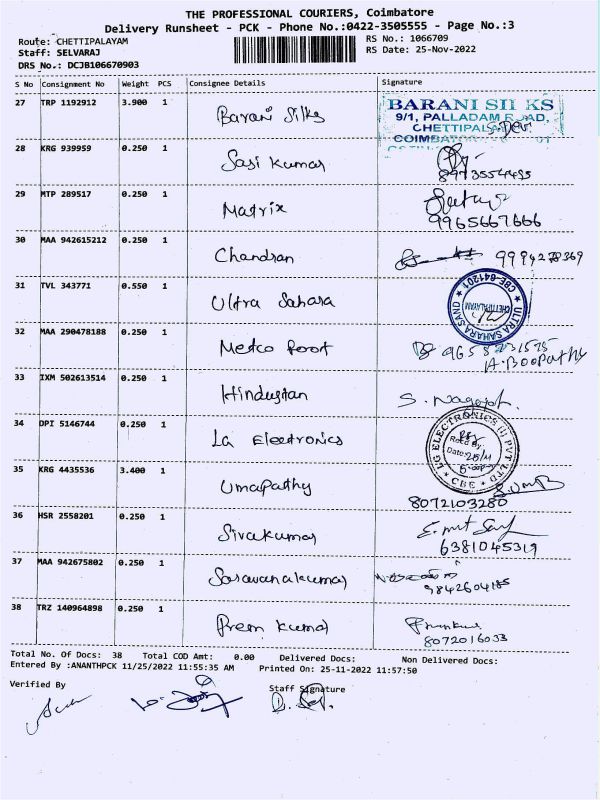 THE PROFESSIONAL COURIERS, Coimbatore
Delivery Runsheet - PCK - Phone No.:0422-3505555 - Page No.:3
Route: CHETTIPALAYAM
RS No.: 1066709
Staff: SELVARAJ
RS Date: 25-Nov-2022
DRS No.: DCJB106670903
S No Consignment No Weight PCS Consignee Details Signature
27 TRP 1192912 3.900 1 Barani Silks
BARANI SILKS
9/1, PALLADAM ROAD,
28 KRG 939959 0.250 1 Sasi Kumar
29 MTP 289517 0.250 1 Matrix
9965667666
30 MAA 942615212 0.250 1 Chandran
31 TVL 343771 0.550 1 Ultra Sahara
ULTRA SAHARA SAND CBE-641201
CHETTIPALAYAM
32 MAA 290478188 0.250 1 Metco Roof
A. Boopathy
33 IXM 502613514 0.250 1 Hindustan
34 OPI 5146744 0.250 1 La Electronics
ELECTRONICS (I) PVT LTD
Recd By
Date: 25/11
CBE
35 KRG 4435536 3.400 1 Umapathy
8072103280
36 HSR 2558201 0.250 1 Sivakumar
6381045319
37 MAA 942675802 0.250 1 Saravanakumar
9842604185
38 TRZ 140964898 0.250 1 Prem Kumar
8072016033
Total No. Of Docs: 38 Total COD Amt: 0.00 Delivered Docs: Non Delivered Docs:
Entered By :ANANTHPCK 11/25/2022 11:55:35 AM Printed On: 25-11-2022 11:57:50
Verified By
Staff Signature